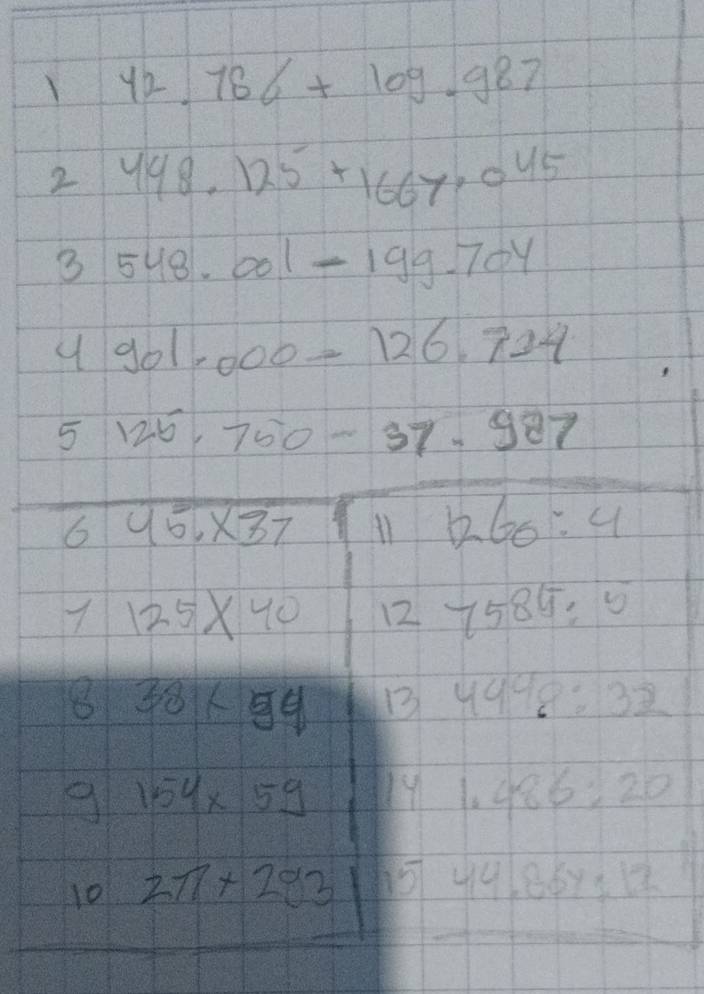 1 42.786 + 109.987
2 448.125 + 1667.045
3 548.001 - 199.704
4 901.000 - 126.724
5 125.750 - 37.987
6 45.x37
7 125x40
8 38x 59
9 154x 59
10 277x 283
11 1260:4
12 7585:5
13 4448:32
14 1.486:20
15 44.864:12